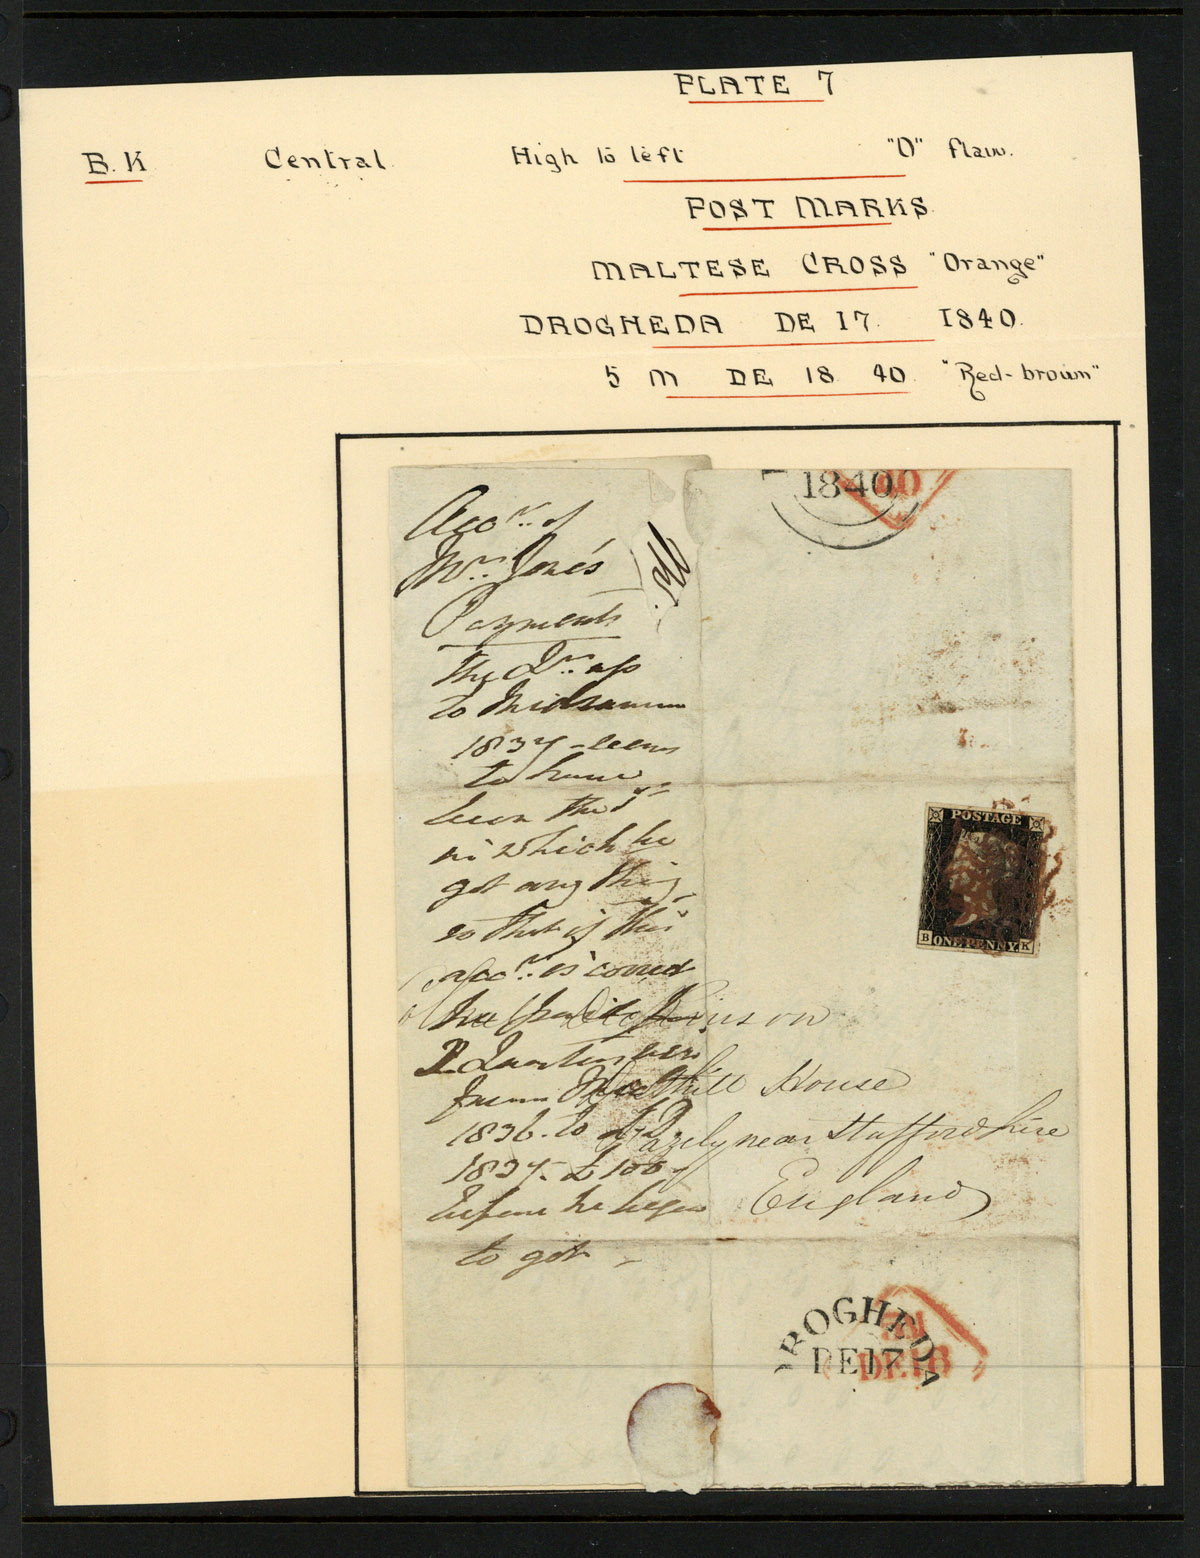 PLATE 7
B.K Central High to left "O" flaw.
POST MARKS
MALTESE CROSS "Orange"
DROGHEDA DE 17. 1840.
5 M DE 18 40 "Red-brown"
1840
40
Acct. of
Mr. Jones
Payments
The Qr. up
to Midsummer
1837 seems
to have
been the 1st
in which he
got any thing
so that if this
acct. is correct
he paid
2 Quarters
from
1836 to
1837 £100
before he began
to get
Dickinson
hill House
Fazely near Staffordshire
England
POSTAGE
B ONE PENNY. K
DROGHEDA
DE 17
DE 18